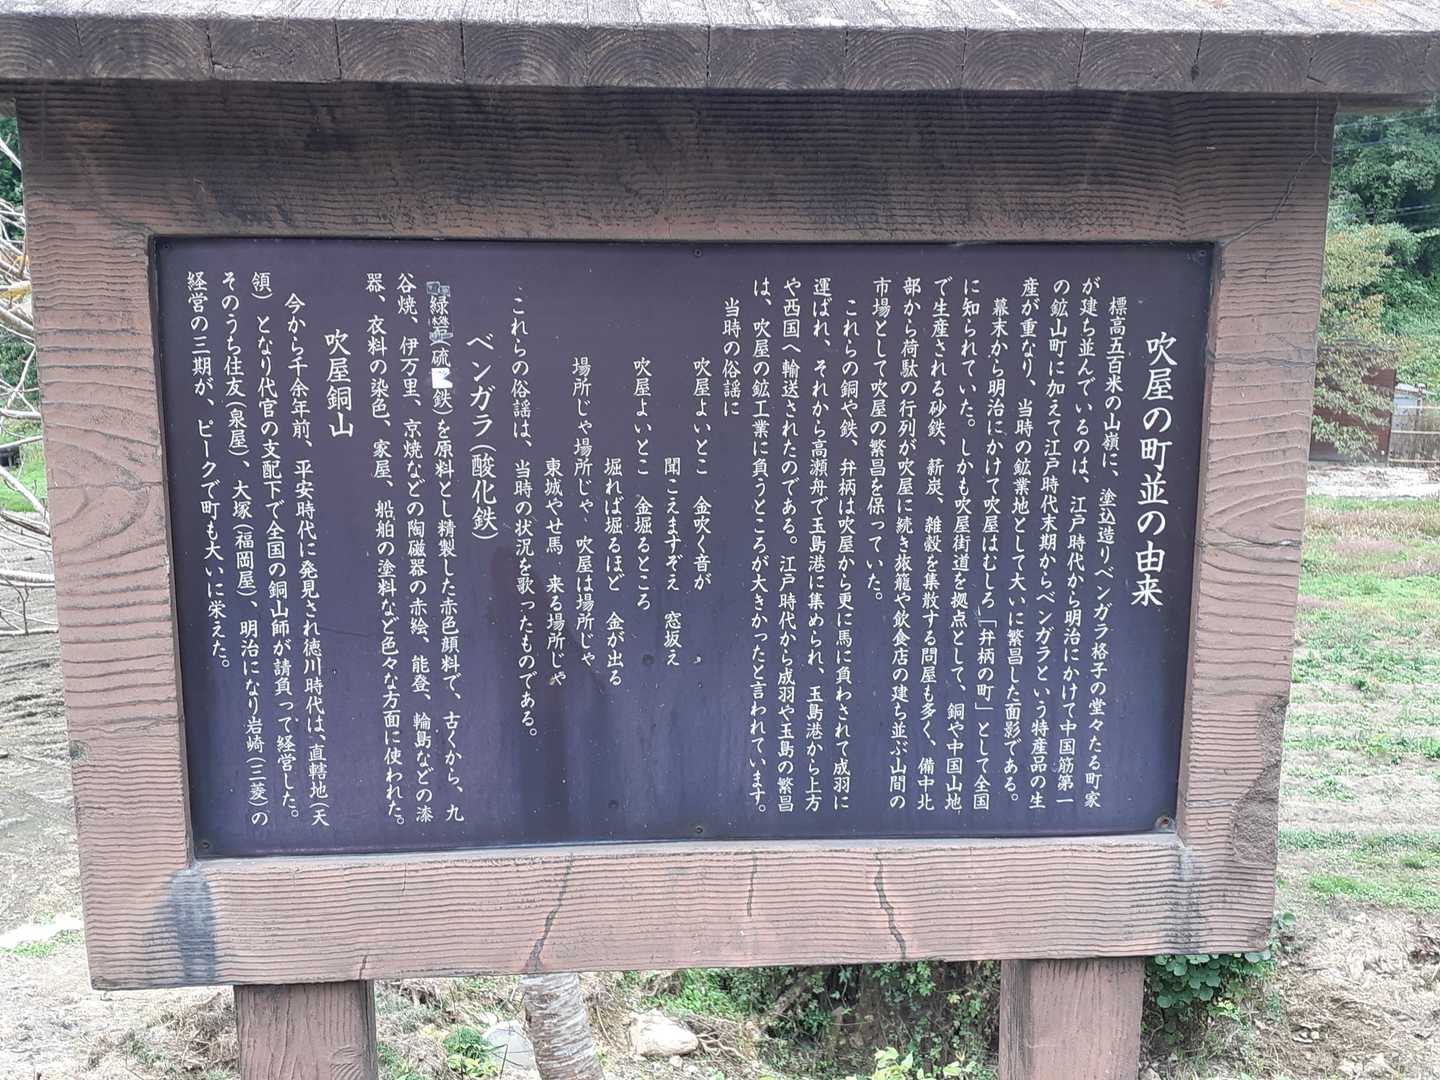 吹屋の町並の由来
標高五百米の山嶺に、塗込造りベンガラ格子の堂々たる町家
が建ち並んでいるのは、江戸時代から明治にかけて中国筋第一
の鉱山町に加えて江戸時代末期からベンガラという特産品の生
産が重なり、当時の鉱業地として大いに繁昌した面影である。
幕末から明治にかけて吹屋はむしろ「弁柄の町」として全国
に知られていた。しかも吹屋街道を拠点として、銅や中国山地
で生産される砂鉄、薪炭、雑穀を集散する問屋も多く、備中北
部から荷駄の行列が吹屋に続き旅籠や飲食店の建ち並ぶ山間の
市場として吹屋の繁昌を保っていた。
これらの銅や鉄、弁柄は吹屋から更に馬に負わされて成羽に
運ばれ、それから高瀬舟で玉島港に集められ、玉島港から上方
や西国へ輸送されたのである。江戸時代から成羽や玉島の繁昌
は、吹屋の鉱工業に負うところが大きかったと言われています。
当時の俗謡に
吹屋よいとこ　金吹く音が
聞こえますぞえ　窓坂え
吹屋よいとこ　金堀るところ
堀れば堀るほど　金が出る
場所じゃ場所じゃ、吹屋は場所じゃ
東城やせ馬　来る場所じゃ
これらの俗謡は、当時の状況を歌ったものである。
ベンガラ（酸化鉄）
緑礬（硫 鉄）を原料とし精製した赤色顔料で、古くから、九
谷焼、伊万里、京焼などの陶磁器の赤絵、能登、輪島などの漆
器、衣料の染色、家屋、船舶の塗料など色々な方面に使われた。
吹屋銅山
今から千余年前、平安時代に発見され徳川時代は、直轄地（天
領）となり代官の支配下で全国の銅山師が請負って経営した。
そのうち住友（泉屋）、大塚（福岡屋）、明治になり岩崎（三菱）の
経営の三期が、ピークで町も大いに栄えた。